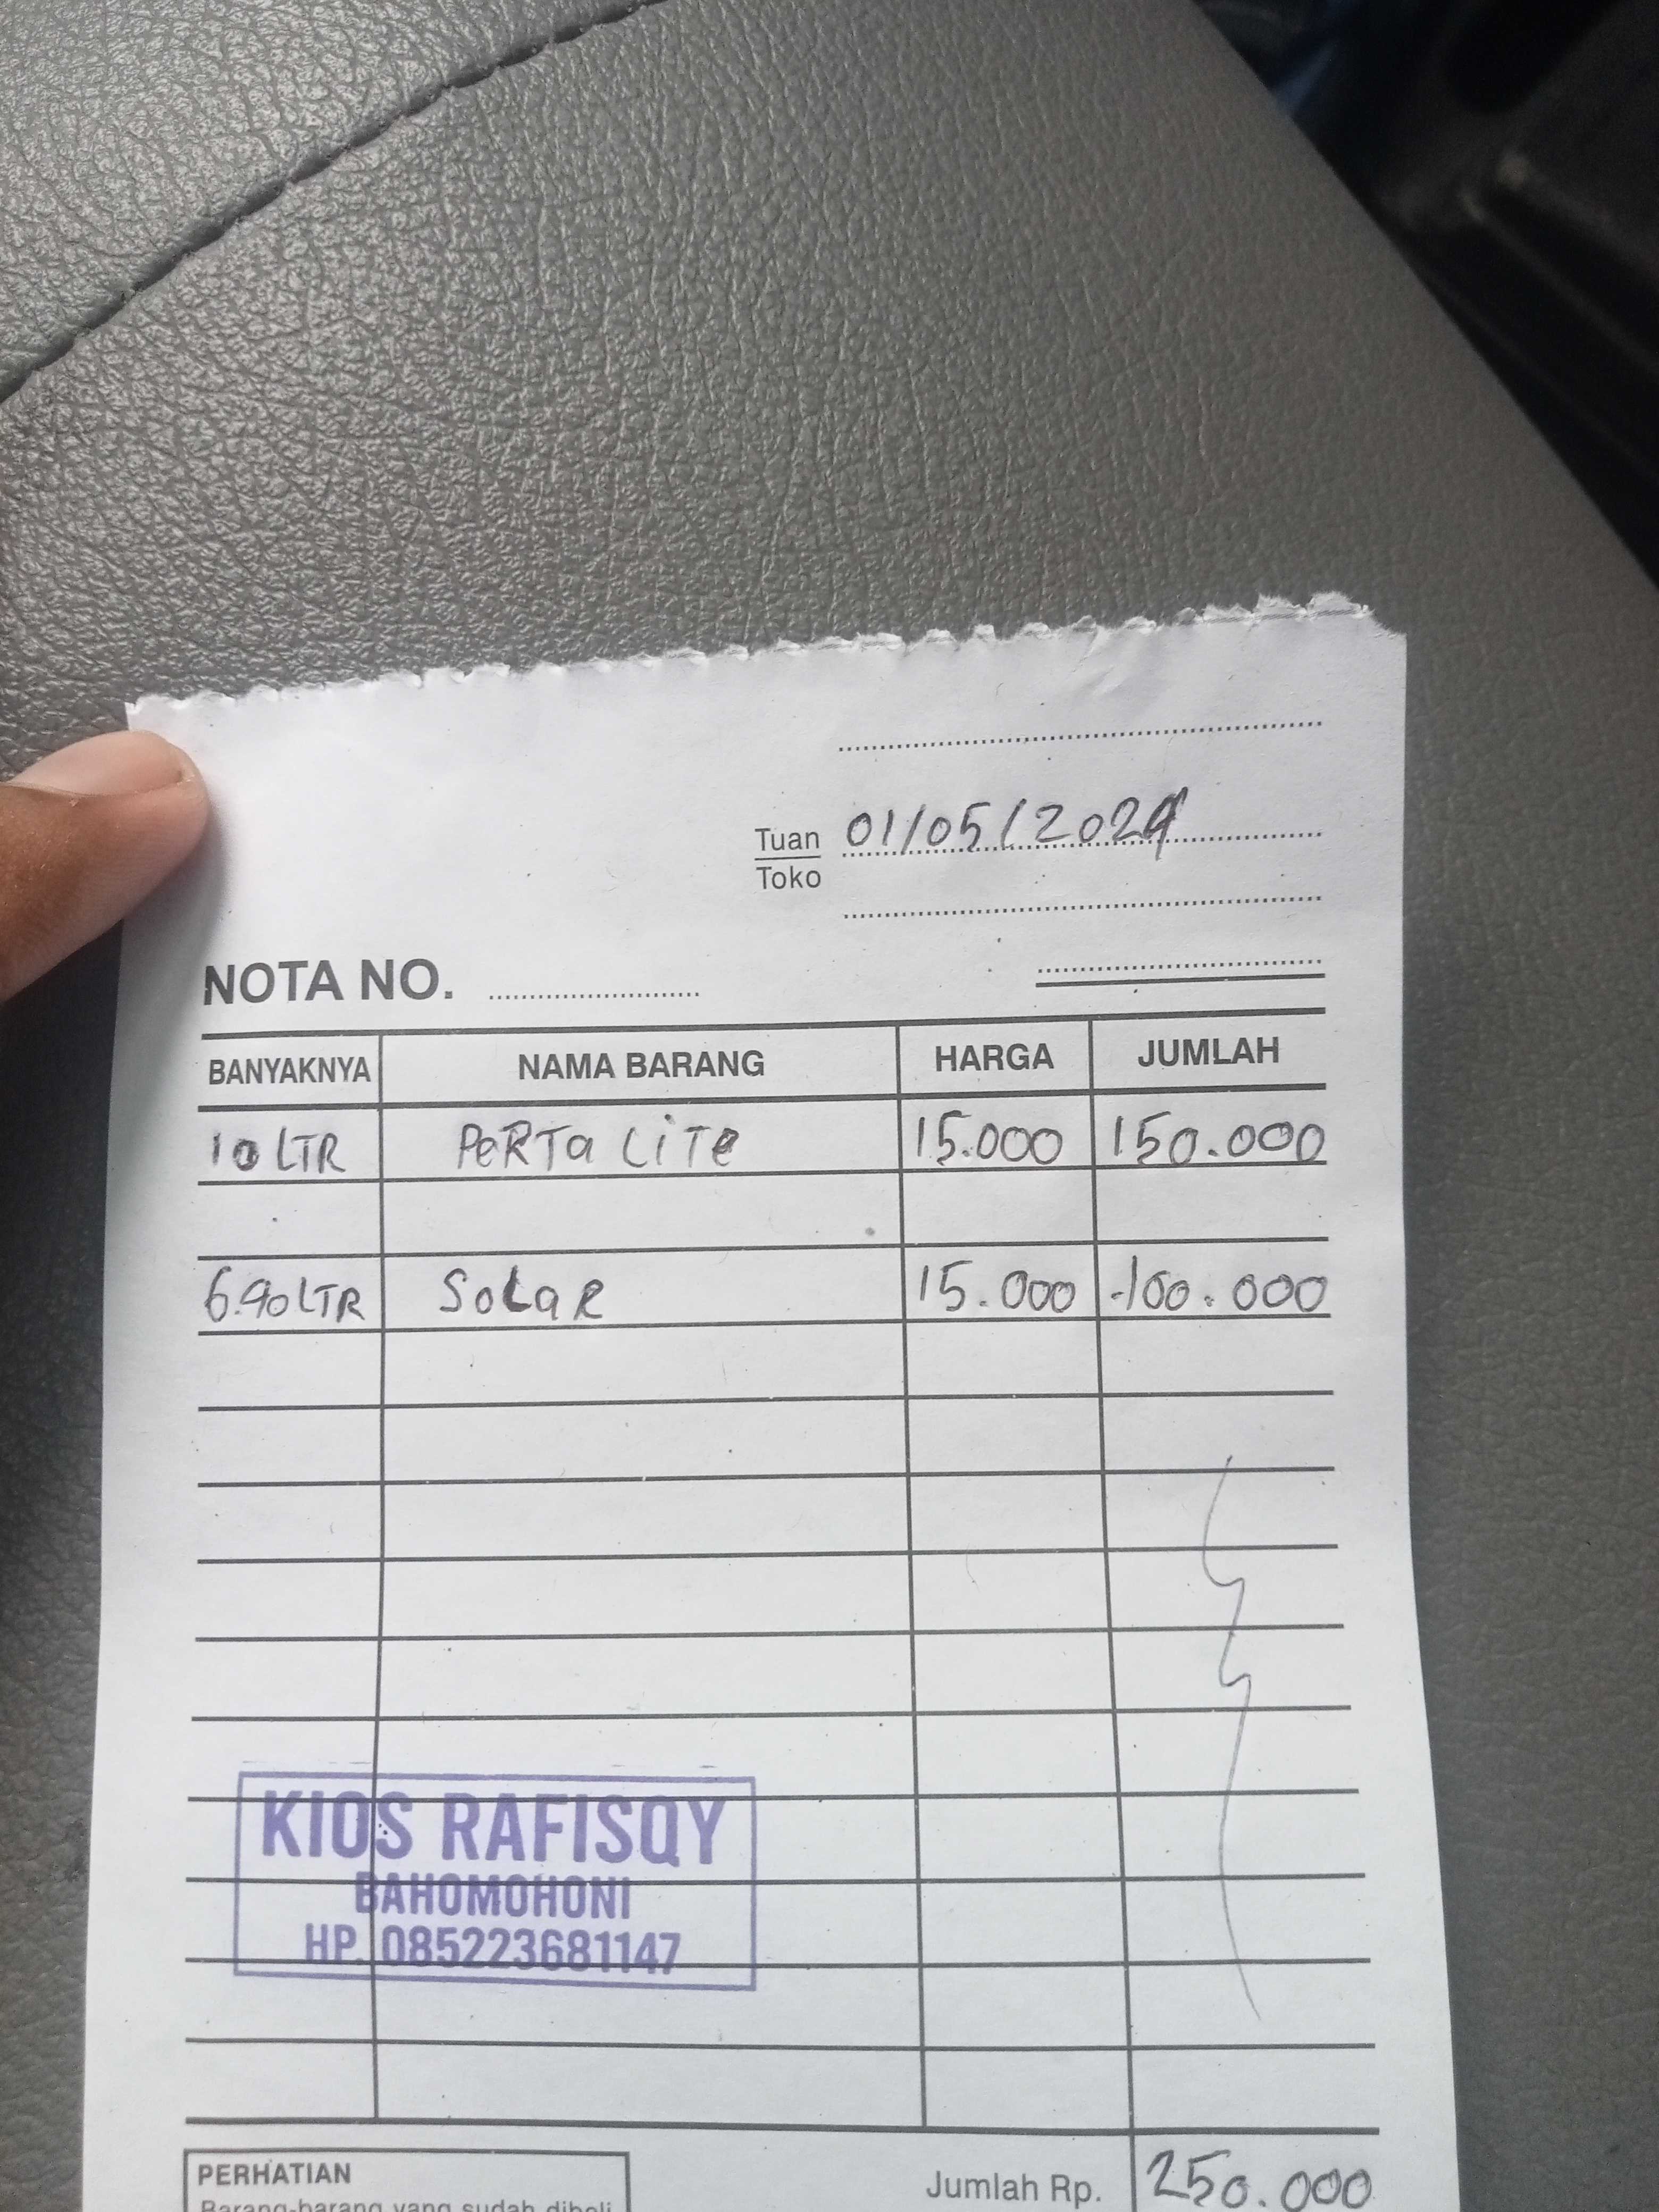 Tuan
Toko
01/05/2024
NOTA NO.
BANYAKNYA NAMA BARANG HARGA JUMLAH
10 LTR PeRTa LiTe 15.000 150.000
6.90 LTR SoLaR 15.000 100.000
KIOS RAFISQY
BAHOMOHONI
HP. 085223681147
PERHATIAN
Barang-barang yang sudah dibeli
Jumlah Rp. 250.000